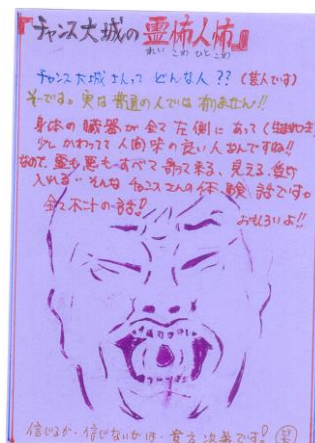 『チャンス大城の霊怖人怖』
れい こわ ひと こわ
チャンス大城さんって どんな人 ?? (芸人です)
そーです。実は普通の人では有りません!!
身体の臓器が全て左側にあって (生まれつき)
少しかわってて人間味の良い人なんですね!!
なので、霊も悪もすべて寄って来る、見える、受け
入れる そんな チャンスさんの体験話です。
全て不思議の話!
おもしろいよ!!
信じるか・信じないかは 貴方次第です!